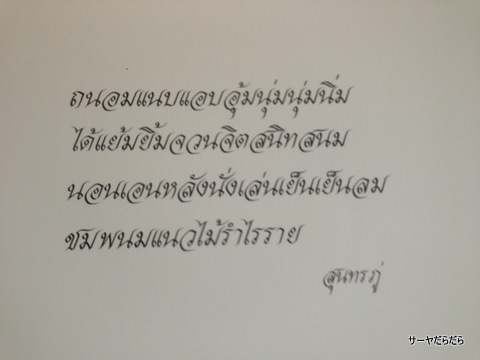 ถนอมแนบแอบอุ้มนุ่มนุ่มนิ่ม
ได้แย้มยิ้มจวนจิตสนิทสนม
นอนเอนหลังนั่งเล่นเย็นเย็นลม
ชมพนมแนวไม้รำไรราย
สุนทรภู่
サーヤだらだら